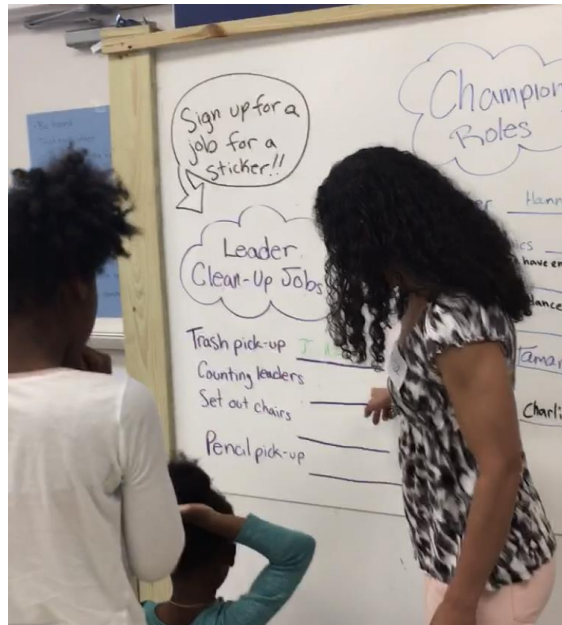 Sign up for a
job for a
sticker!!
Champion
Roles
Leader
Clean-Up Jobs
Trash pick-up
Counting leaders
Set out chairs
Pencil pick-up
Hann
have en
dance
Tamar
Charli